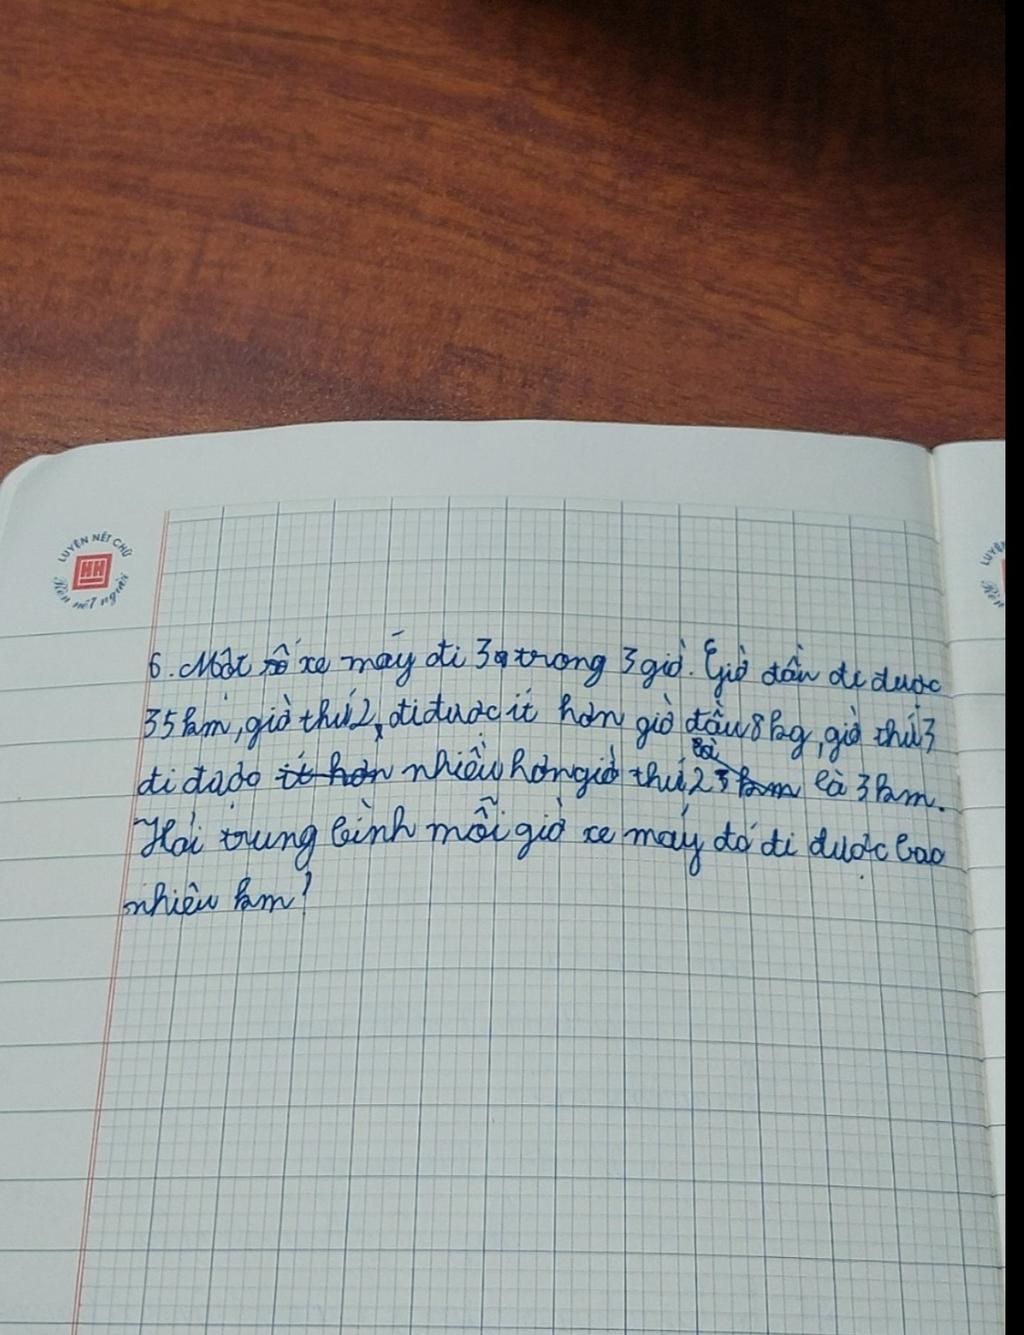 LUYỆN NÉT CHỮ
HH
Rèn nết người
LUYỆ
Rèn
6. Một xe máy đi trong 3 giờ. Giờ đầu đi được
35 km, giờ thứ 2 đi được ít hơn giờ đầu 8 kg, giờ thứ 3
đi được ít hơn nhiều hơn giờ thứ 2 3 km là 3 km.
Hỏi trung bình mỗi giờ xe máy đó đi được bao
nhiêu km?